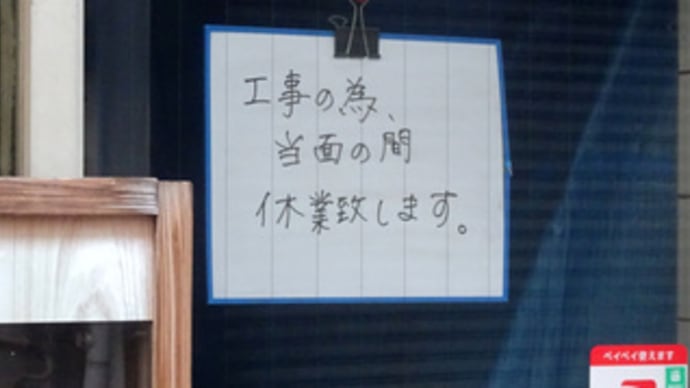 工事の為、
当面の間
休業致します。
ペイペイ使えます